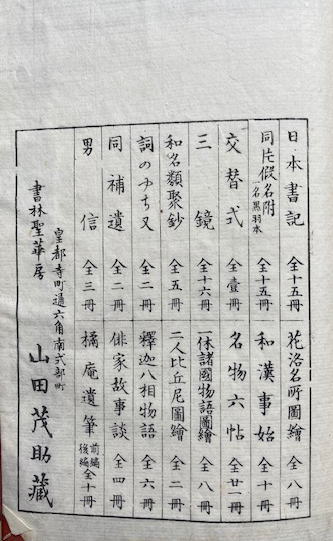 日本書記 全十五冊
同片假名附 一名黒羽本 全十五冊
交替式 全壹冊
三鏡 全十六冊
和名類聚鈔 全五冊
詞のやちまた 全二冊
同補遺 全二冊
男信 全三冊
花洛名所圖繪 全八冊
和漢事始 全十冊
名物六帖 全廿一冊
一休諸國物語圖繪 全八冊
二人比丘尼圖繪 全二冊
釋迦八相物語 全六冊
俳家故事談 全四冊
橘庵遺筆 前編後編 全十冊
皇都寺町通六角南式部町
書林聖華房 山田茂助藏